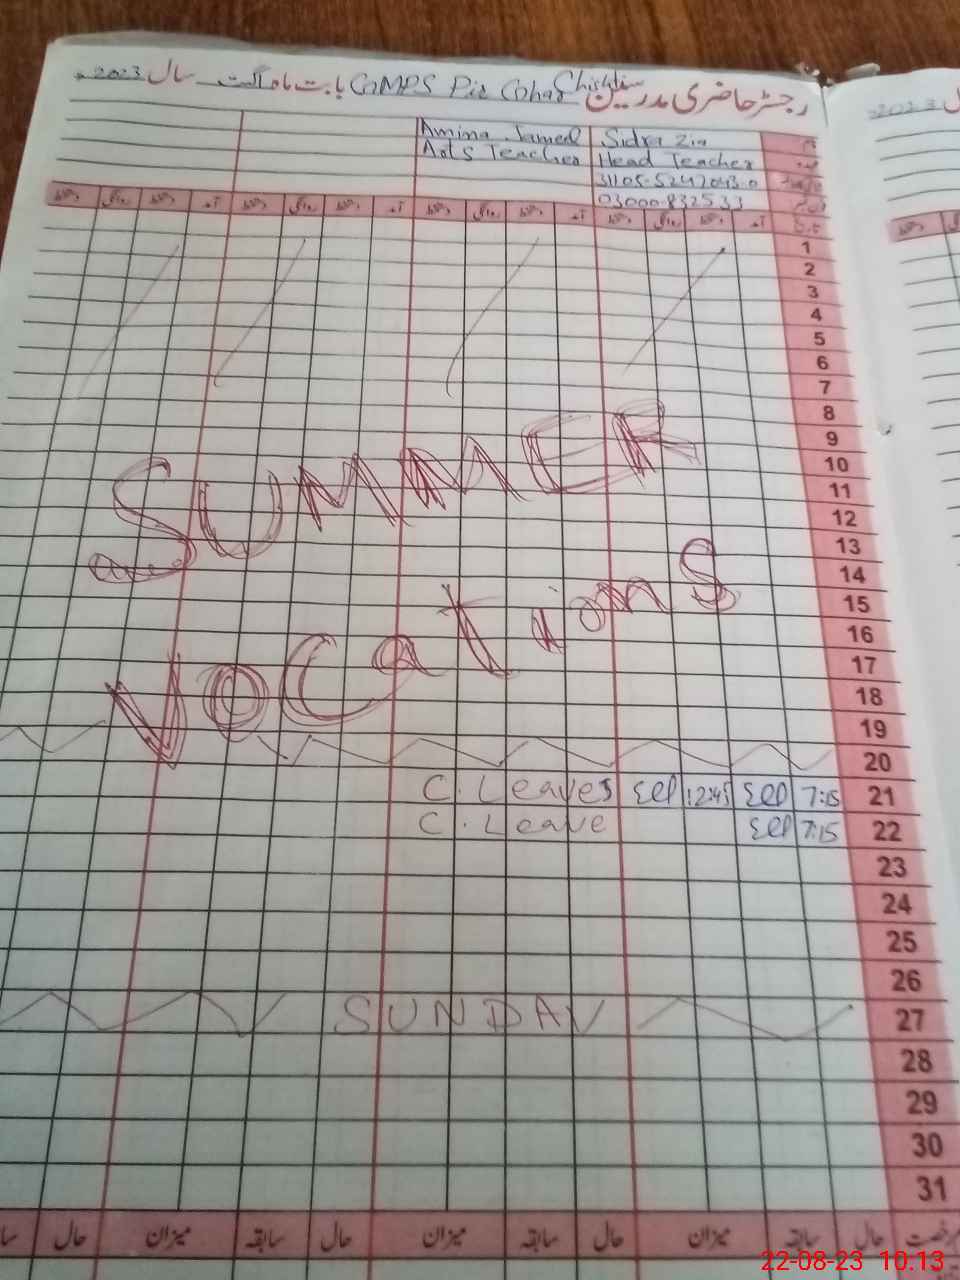 رجسٹر حاضری مدرسین GMPS Pir Gohar Chishti بابت ماہ اگست سال 2023
Sidra Zia Amina Jameel
Head Teacher Arts Teacher
31105-5247043-0
03000-832533
آمد دستخط روانگی دستخط آمد دستخط روانگی دستخط آمد دستخط روانگی دستخط آمد دستخط روانگی دستخط
1
2
3
4
5
6
7
8
9
10
11
12
13
14
15
16
17
18
19
20
SUMMER
VOCatIonS
21 7:15 12:45 C. Leaves
22 7:15 C. Leave
23
24
25
26
27 SUNDAY
28
29
30
31
رخصت حال سابقہ میزان حال سابقہ میزان حال سابقہ میزان حال
22-08-23 10.13